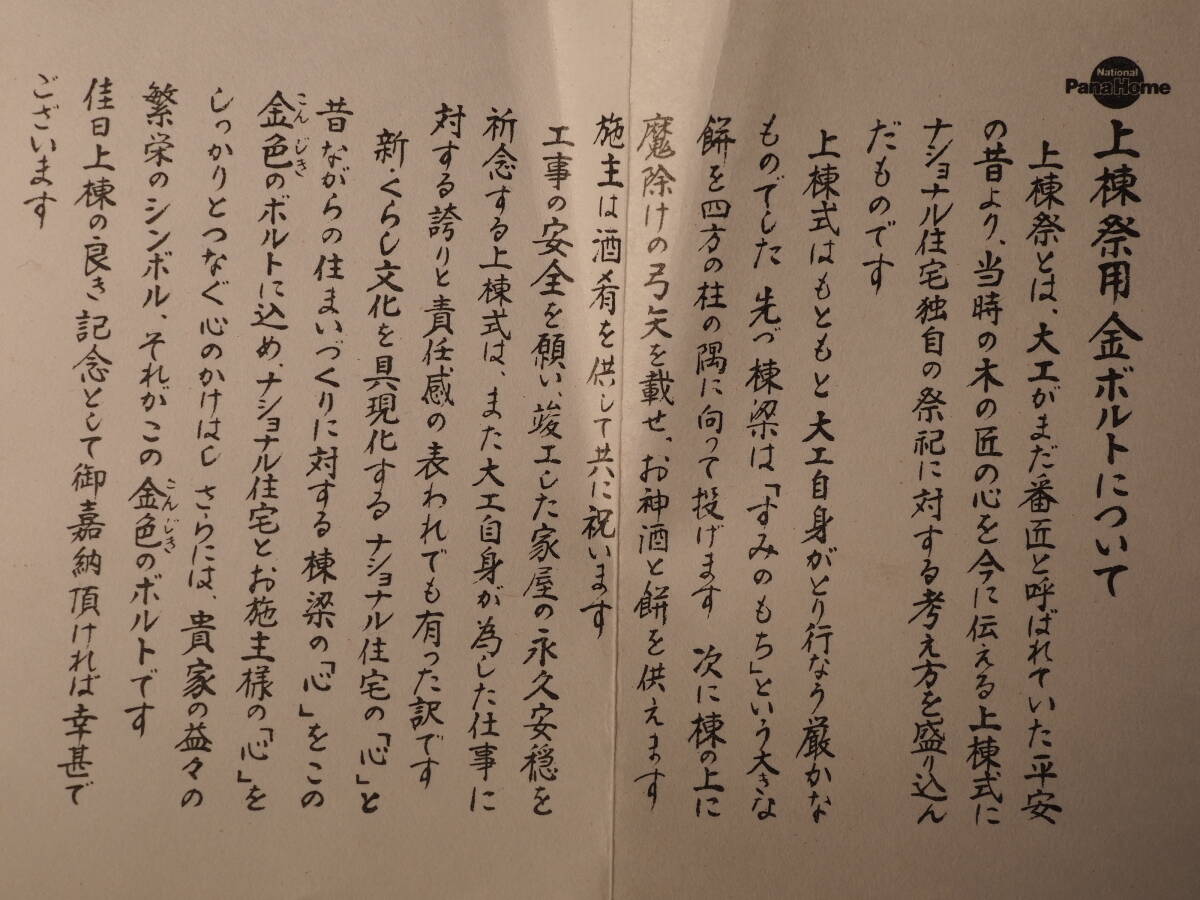 National
PanaHome
上棟祭用金ボルトについて
上棟祭とは、大工がまだ番匠と呼ばれていた平安
の昔より、当時の木の匠の心を今に伝える上棟式に
ナショナル住宅独自の祭祀に対する考え方を盛り込ん
だものです
上棟式はもともと大工自身がとり行なう厳かな
ものでした 先づ棟梁は「すみのもち」という大きな
餅を四方の柱の隅に向って投げます 次に棟の上に
魔除けの弓矢を載せ、お神酒と餅を供えます
施主は酒肴を供して共に祝います
工事の安全を願い、竣工した家屋の永久安穏を
祈念する上棟式は、また大工自身が為した仕事に
対する誇りと責任感の表われでも有った訳です
新・くらし文化を具現化するナショナル住宅の「心」と
昔ながらの住まいづくりに対する棟梁の「心」をこの
金色のボルトに込め、ナショナル住宅とお施主様の「心」を
こんじき
しっかりとつなぐ心のかけはし さらには、貴家の益々の
繁栄のシンボル、それがこの金色のボルトです
こんじき
佳日上棟の良き記念として御嘉納頂ければ幸甚で
ございます